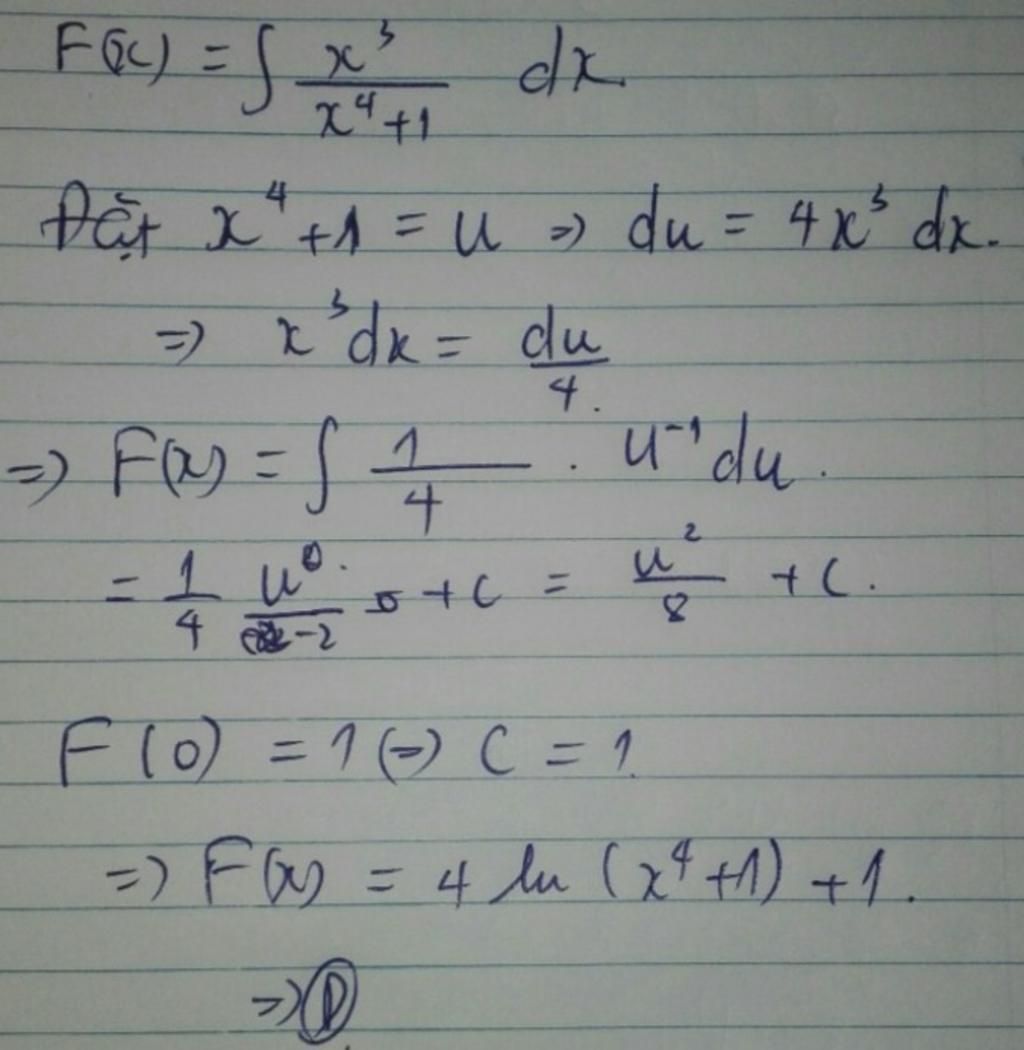 F(x) = ∫ x³/(x⁴+1) dx
Đặt x⁴+1 = u => du = 4x³ dx.
=> x³dx = du/4.
=> F(x) = ∫ 1/4 . u⁻¹ du.
= 1/4 u⁰/-2 + C = u²/8 + C.
F(0) = 1 (=) C = 1.
=> F(x) = 4 ln (x⁴+1) + 1.
=> D